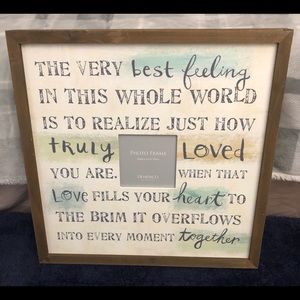 THE VERY best feeling
IN THIS WHOLE WORLD
IS TO REALIZE JUST HOW
truly LOVED
PHOTO FRAME
YOU ARE. WHEN THAT
Love FILLS YOUR heart TO
THE BRIM IT OVERFLOWS
INTO EVERY MOMENT together